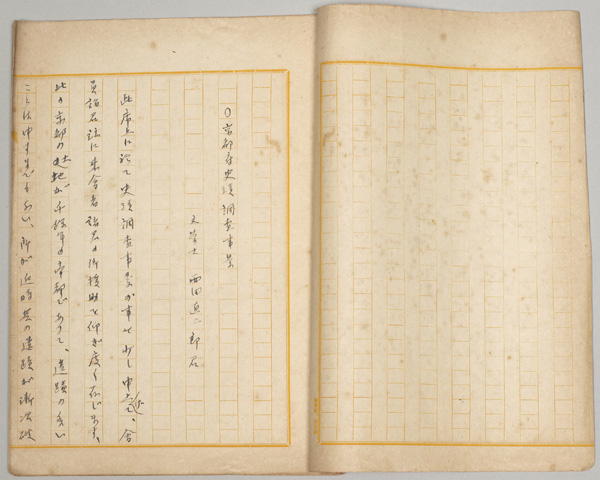 〇京都府史蹟調査事業
文学士 西田直二郎君
此席上に於て史蹟調査事業の事を少し申述べ、会
員諸君並に来会者諸君の御援助を仰ぎ度く存じます、
此の京都の土地が千余年の帝都であつて、遺蹟の多い
ことは申すまでもない、所が近時其の遺蹟が漸次破